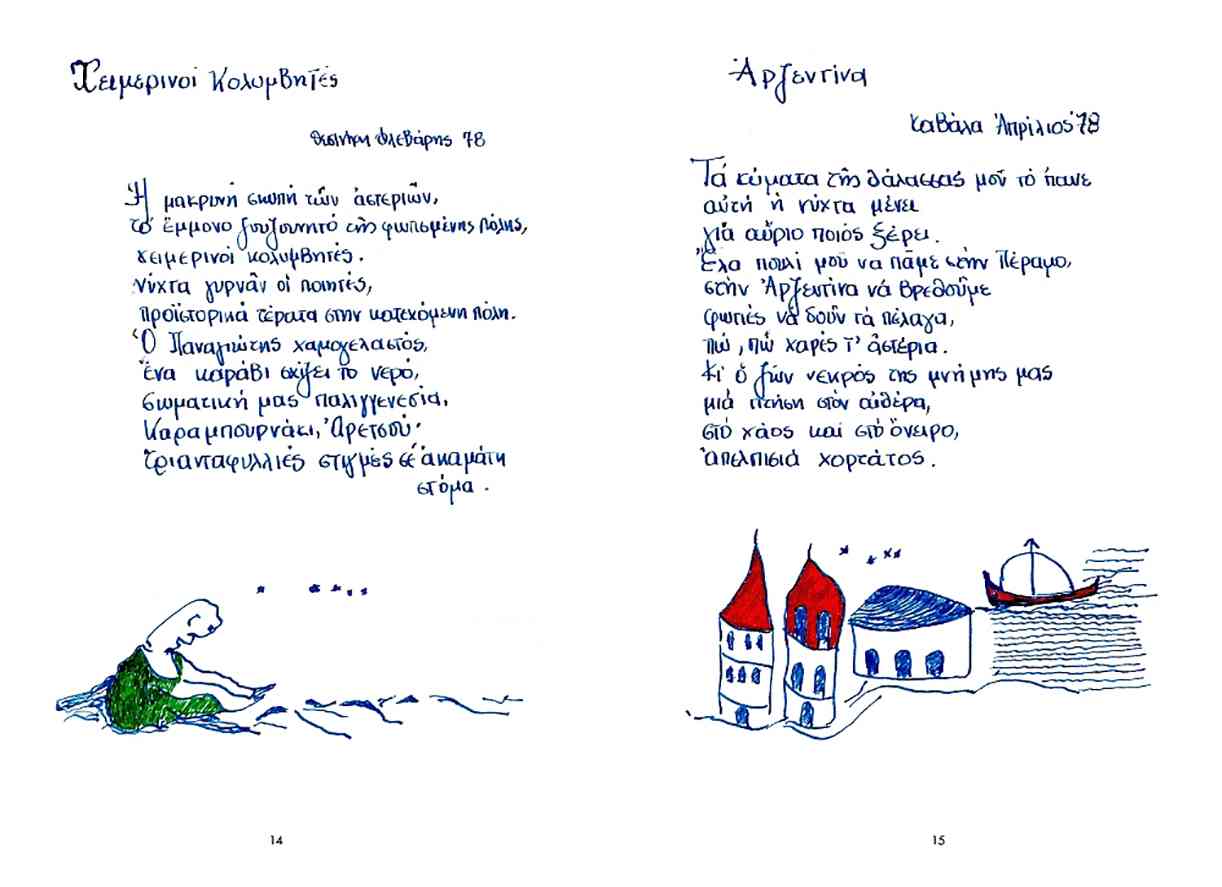 Χειμερινοί Κολυμβητές
Θεσ/νίκη Φλεβάρης 78
Ἡ μακρινή σιωπή τῶν ἀστεριῶν,
τό ἔμμονο ζουζουνητό τῆς φωτισμένης πόλης,
χειμερινοί κολυμβητές.
Νύχτα γυρνᾶν οἱ ποιητές,
προϊστορικά τέρατα στην κατεχόμενη πόλη.
Ὁ Παναγιώτης χαμογελαστός,
ἕνα καράβι σχίζει το νερό,
σωματική μας παλιγγενεσία,
Καραμπουρνάκι, Ἀρετσού·
τριανταφυλλιές στιγμές σέ ἀκαμάτη
στόμα.
14
Ἀρζεντίνα
Καβάλα Ἀπρίλιος 78
Τά κύματα τῆς θάλασσας μοῦ τό 'πανε
αὐτή ἡ νύχτα μένει
γιά αὔριο ποιός ξέρει.
Ἔλα πουλί μου να πᾶμε στήν Πέραμο,
στήν Ἀρζεντίνα νά βρεθοῦμε
φωτιές νά δοῦν τά πέλαγα,
πώ, πώ χαρές τ' ἀστέρια.
Κι ὁ ζῶν νεκρός της μνήμης μας
μιά πτήση στόν αἰθέρα,
στό χάος καί στό ὄνειρο,
ἀπελπισιά χορτάτος.
15